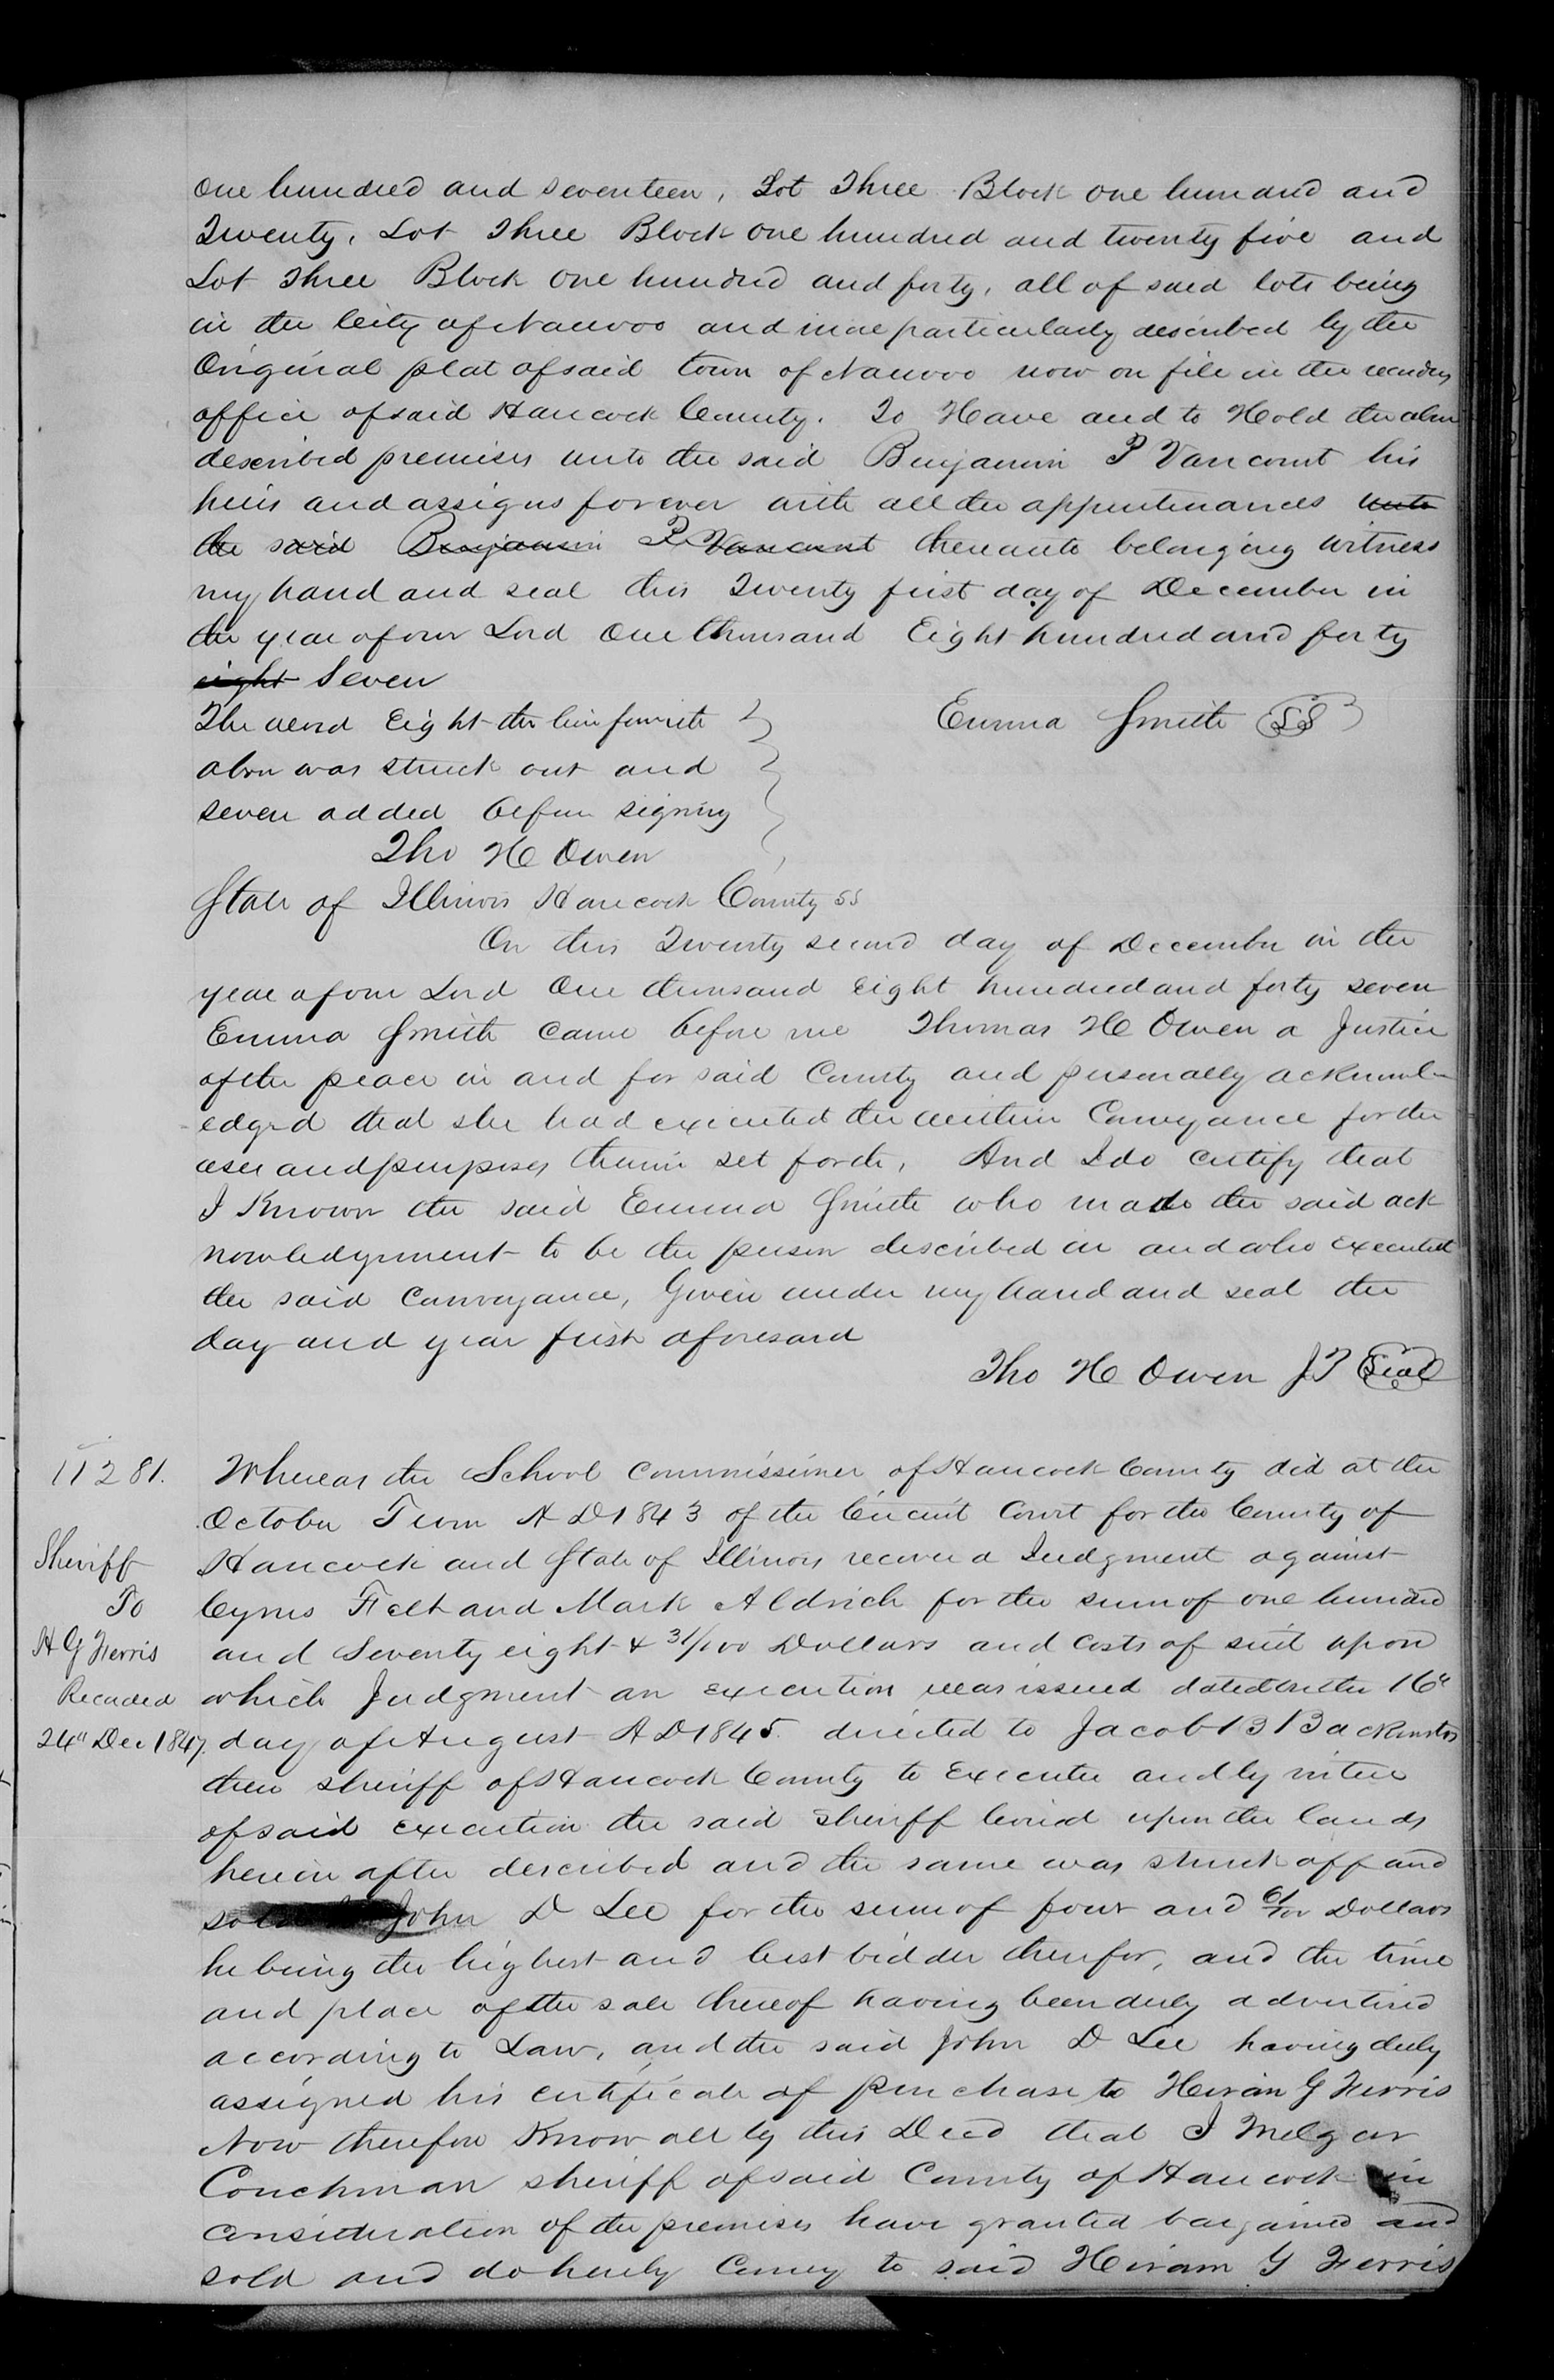 one hundred and seventeen, Lot Three Block one hundred and
Twenty, Lot Three Block one hundred and twenty five and
Lot Three Block one hundred and forty, all of said lots being
in the City of Nauvoo and more particularly described by the
Original plat of said town of Nauvoo now on file in the recorders
office of said Hancock County. To Have and to Hold the above
described premises unto the said Benjamin P Vancourt his
heirs and assigns forever with all the appurtenances unto
the said Benjamin P Vancourt thereunto belonging witness
my hand and seal this Twenty first day of December in
the year of our Lord One thousand Eight hundred and forty
eight Seven
The word Eight the line
above was struck out and
seven added before signing
Tho H Owen
Emma Smith LS
State of Illinois Hancock County SS
On this Twenty second day of December in the
year of our Lord One thousand eight hundred and forty seven
Emma Smith came before me Thomas H Owen a Justice
of the peace in and for said County and personally acknowl-
edged that she had executed the within Conveyance for the
uses and purposes therein set forth, And I do certify that
I Known the said Emma Smith who made the said ack
nowledgment to be the person described in and who executed
the said Conveyance, Given under my hand and seal the
day and year first aforesaid
Tho H Owen JP Seal
11281.
Sheriff
To
H G Ferris
Recorded
24" Dec 1847.
Whereas the School Commissioner of Hancock County did at the
October Term A D 1843 of the Circuit Court for the County of
Hancock and State of Illinois recover a Judgment against
Cyrus Felt and Mark Aldrich for the sum of one hundred
and Seventy eight & 31/100 Dollars and costs of suit upon
which Judgment an execution was issued dated on the 16"
day of August A D 1845 directed to Jacob B Backenstos
then sheriff of Hancock County to execute and by virtue
of said execution the said sheriff levied upon the lands
herein after described and the same was struck off and
sold John D Lee for the sum of four and 61/100 Dollars
he being the highest and best bidder therefor, and the time
and place of the sale thereof having been duly advertised
according to Law, and the said John D Lee having duly
assigned his certificate of purchase to Hiram G Ferris
Now therefore Know all by this Deed that I Melgar
Couchman sheriff of said County of Hancock in
consideration of the premises have granted bargained and
sold and do hereby Convey to said Hiram G Ferris